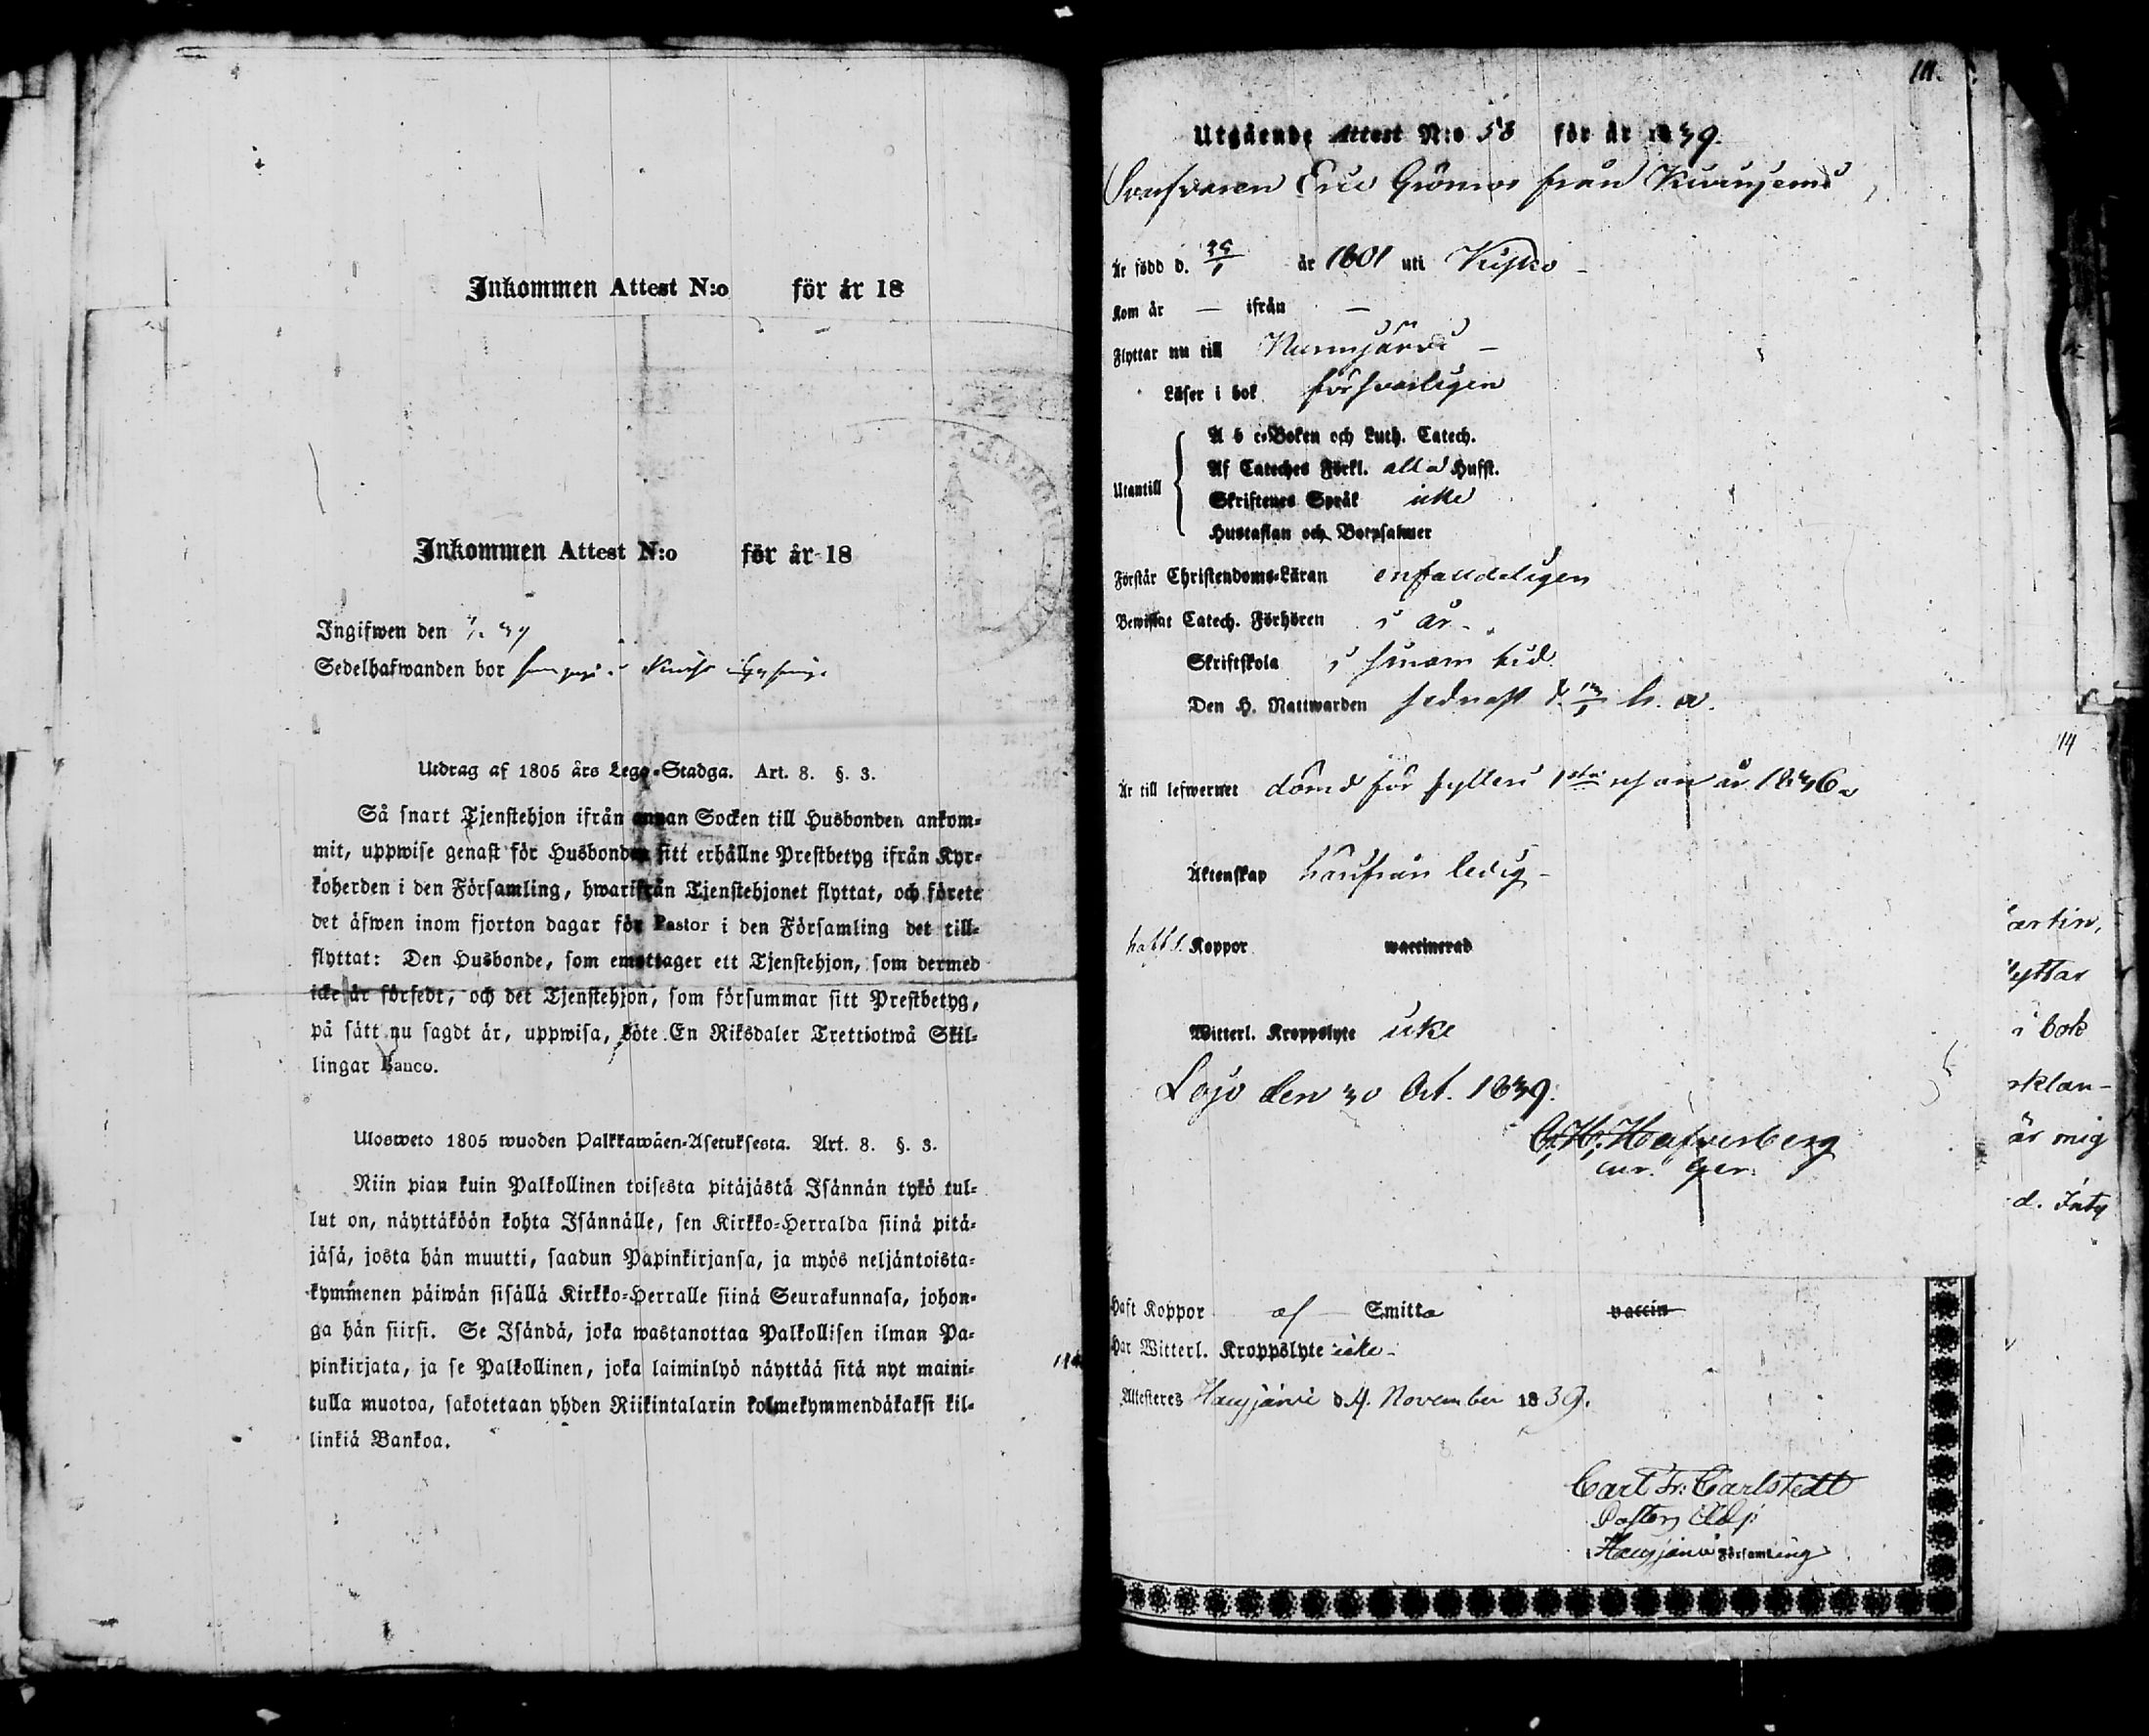 Inkommen Attest N:o för år 18
Inkommen Attest N:o för år 18
Ingifwen den
Sedelhafwanden bor
Utdrag af 1805 års Lego-Stadga. Art. 8. §. 3.
Så snart Tjenstehjon ifrån annan Socken till Husbonden ankom-
mit, uppwise genast för Husbonden sitt erhållne Prestbetyg ifrån Kyr-
koherden i den Församling, hwarifrån Tjenstehjonet flyttat, och förete
det äfwen inom fjorton dagar för Pastor i den Församling det till-
flyttat: Den Husbonde, som emottager ett Tjenstehjon, som dermed
icke är försedt, och det Tjenstehjon, som försummar sitt Prestbetyg,
på sätt nu sagdt är, uppwisa, böte En Riksdaler Trettiotwå Skil-
lingar Banco.
Ulosweto 1805 wuoden Palkkawäen-Asetuksesta. Art. 8. §. 3.
Niin pian kuin Palkollinen toisesta pitäjästä Isännän tykö tul-
lut on, näyttäköön kohta Isännälle, sen Kirkko-Herralda siinä pitä-
jäsä, josta hän muutti, saadun Papinkirjansa, ja myös neljäntoista-
kymmenen päiwän sisällä Kirkko-Herralle siinä Seurakunnasa, johon-
ga hän siirsi. Se Isändä, joka wastanottaa Palkollisen ilman Pa-
pinkirjata, ja se Palkollinen, joka laiminlyö näyttää sitä nyt maini-
tulla muotoa, sakotetaan yhden Riikintalarin kolmekymmendäkaksi kil-
linkiä Bankoa.
Utgående Attest N:o 58 för år 1839.
Eric Grönros från
Är född d. år 1801 uti Kisko
Kom år — ifrån —
Flyttar nu till Nurmijärvi —
Läser i bok försvarligen
Utantill
A b c-Boken och Luth. Catech.
Af Cateches Förkl. alla Hufst.
Skriftenes Språk icke
Hustaflan och Botpsalmer
Förstår Christendoms-Läran enfaldeligen
Bewistat Catech. Förhören i år
Skriftskola i sinom tid
Den H. Nattwarden sednast d. h. a.
Är till lefwernet dömd för fylleri 1sta resan år 1836
Äktenskap härifrån ledig —
haft s. Koppor waccinerad
Witterl. Kroppslyte icke
Lojo den 30 Oct. 1839.
C. H. Hafverberg
cur. ger.
Haft Koppor af Smitta vaccin
Har Witterl. Kroppslyte icke
Attesteres Hausjärvi d. 4. November 1839.
Carl Fr: Carlstedt
Pastors Adj:
i Hausjärvi Församling
artin,
yttar
i bok
rklan-
är mig